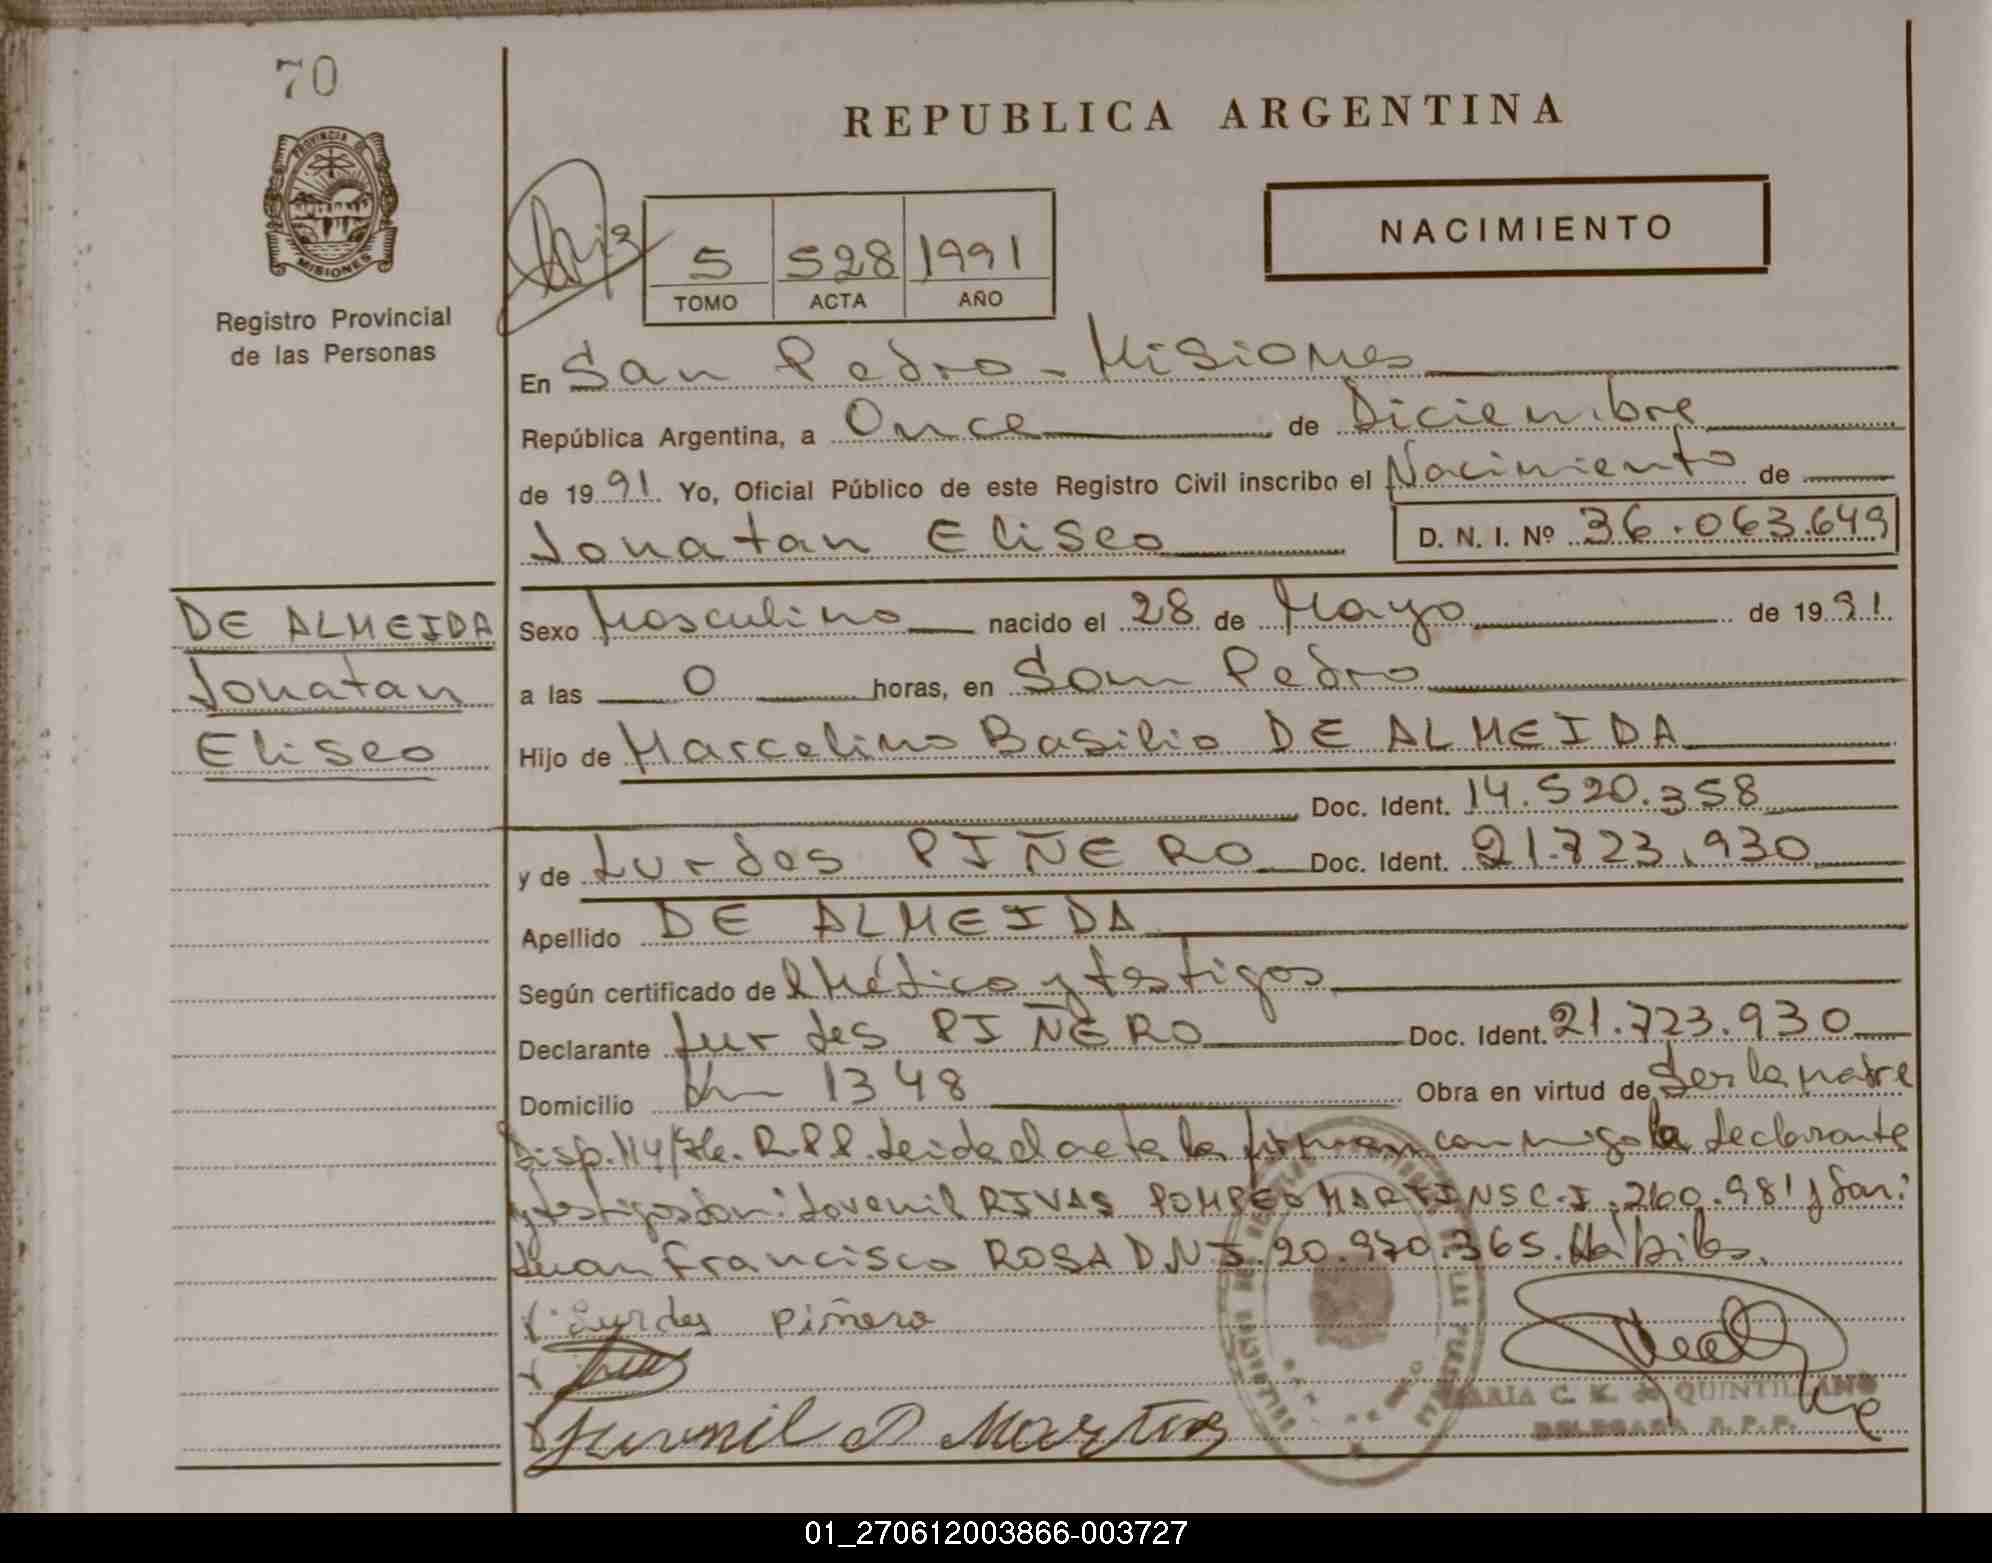 70
PROVINCIA DE
MISIONES
Registro Provincial
de las Personas
REPUBLICA ARGENTINA
NACIMIENTO
5 528 1991
TOMO ACTA AÑO
En San Pedro - Misiones
República Argentina, a Once de Diciembre
de 1991. Yo, Oficial Público de este Registro Civil inscribo el Nacimiento de
Jonatan Eliseo D. N. I. Nº 36.063.649
DE ALMEIDA
Jonatan
Eliseo
Sexo Masculino nacido el 28 de Mayo de 1991.
a las 0 horas, en San Pedro
Hijo de Marcelino Basilio DE ALMEIDA
Doc. Ident. 14.520.358
y de Lurdes PIÑERO Doc. Ident. 21.723.930
Apellido DE ALMEIDA
Según certificado del Médico y testigos
Declarante Lurdes PIÑERO Doc. Ident. 21.723.930
Domicilio Km 1348 Obra en virtud de Ser la madre
Disp. 114/76. R.P.P. Leida el acta la firman conmigo la declarante
y testigos Don: Jovenil RIVAS POMPEO MARTINS C.I. 260.981 y Don:
Juan Francisco ROSA D.N.I. 20.970.365. Hábiles.
Lurdes piñero
Juvenil D Martins
MARIA C. K. de QUINTILLANO
DELEGADA R.P.P.
01_270612003866-003727